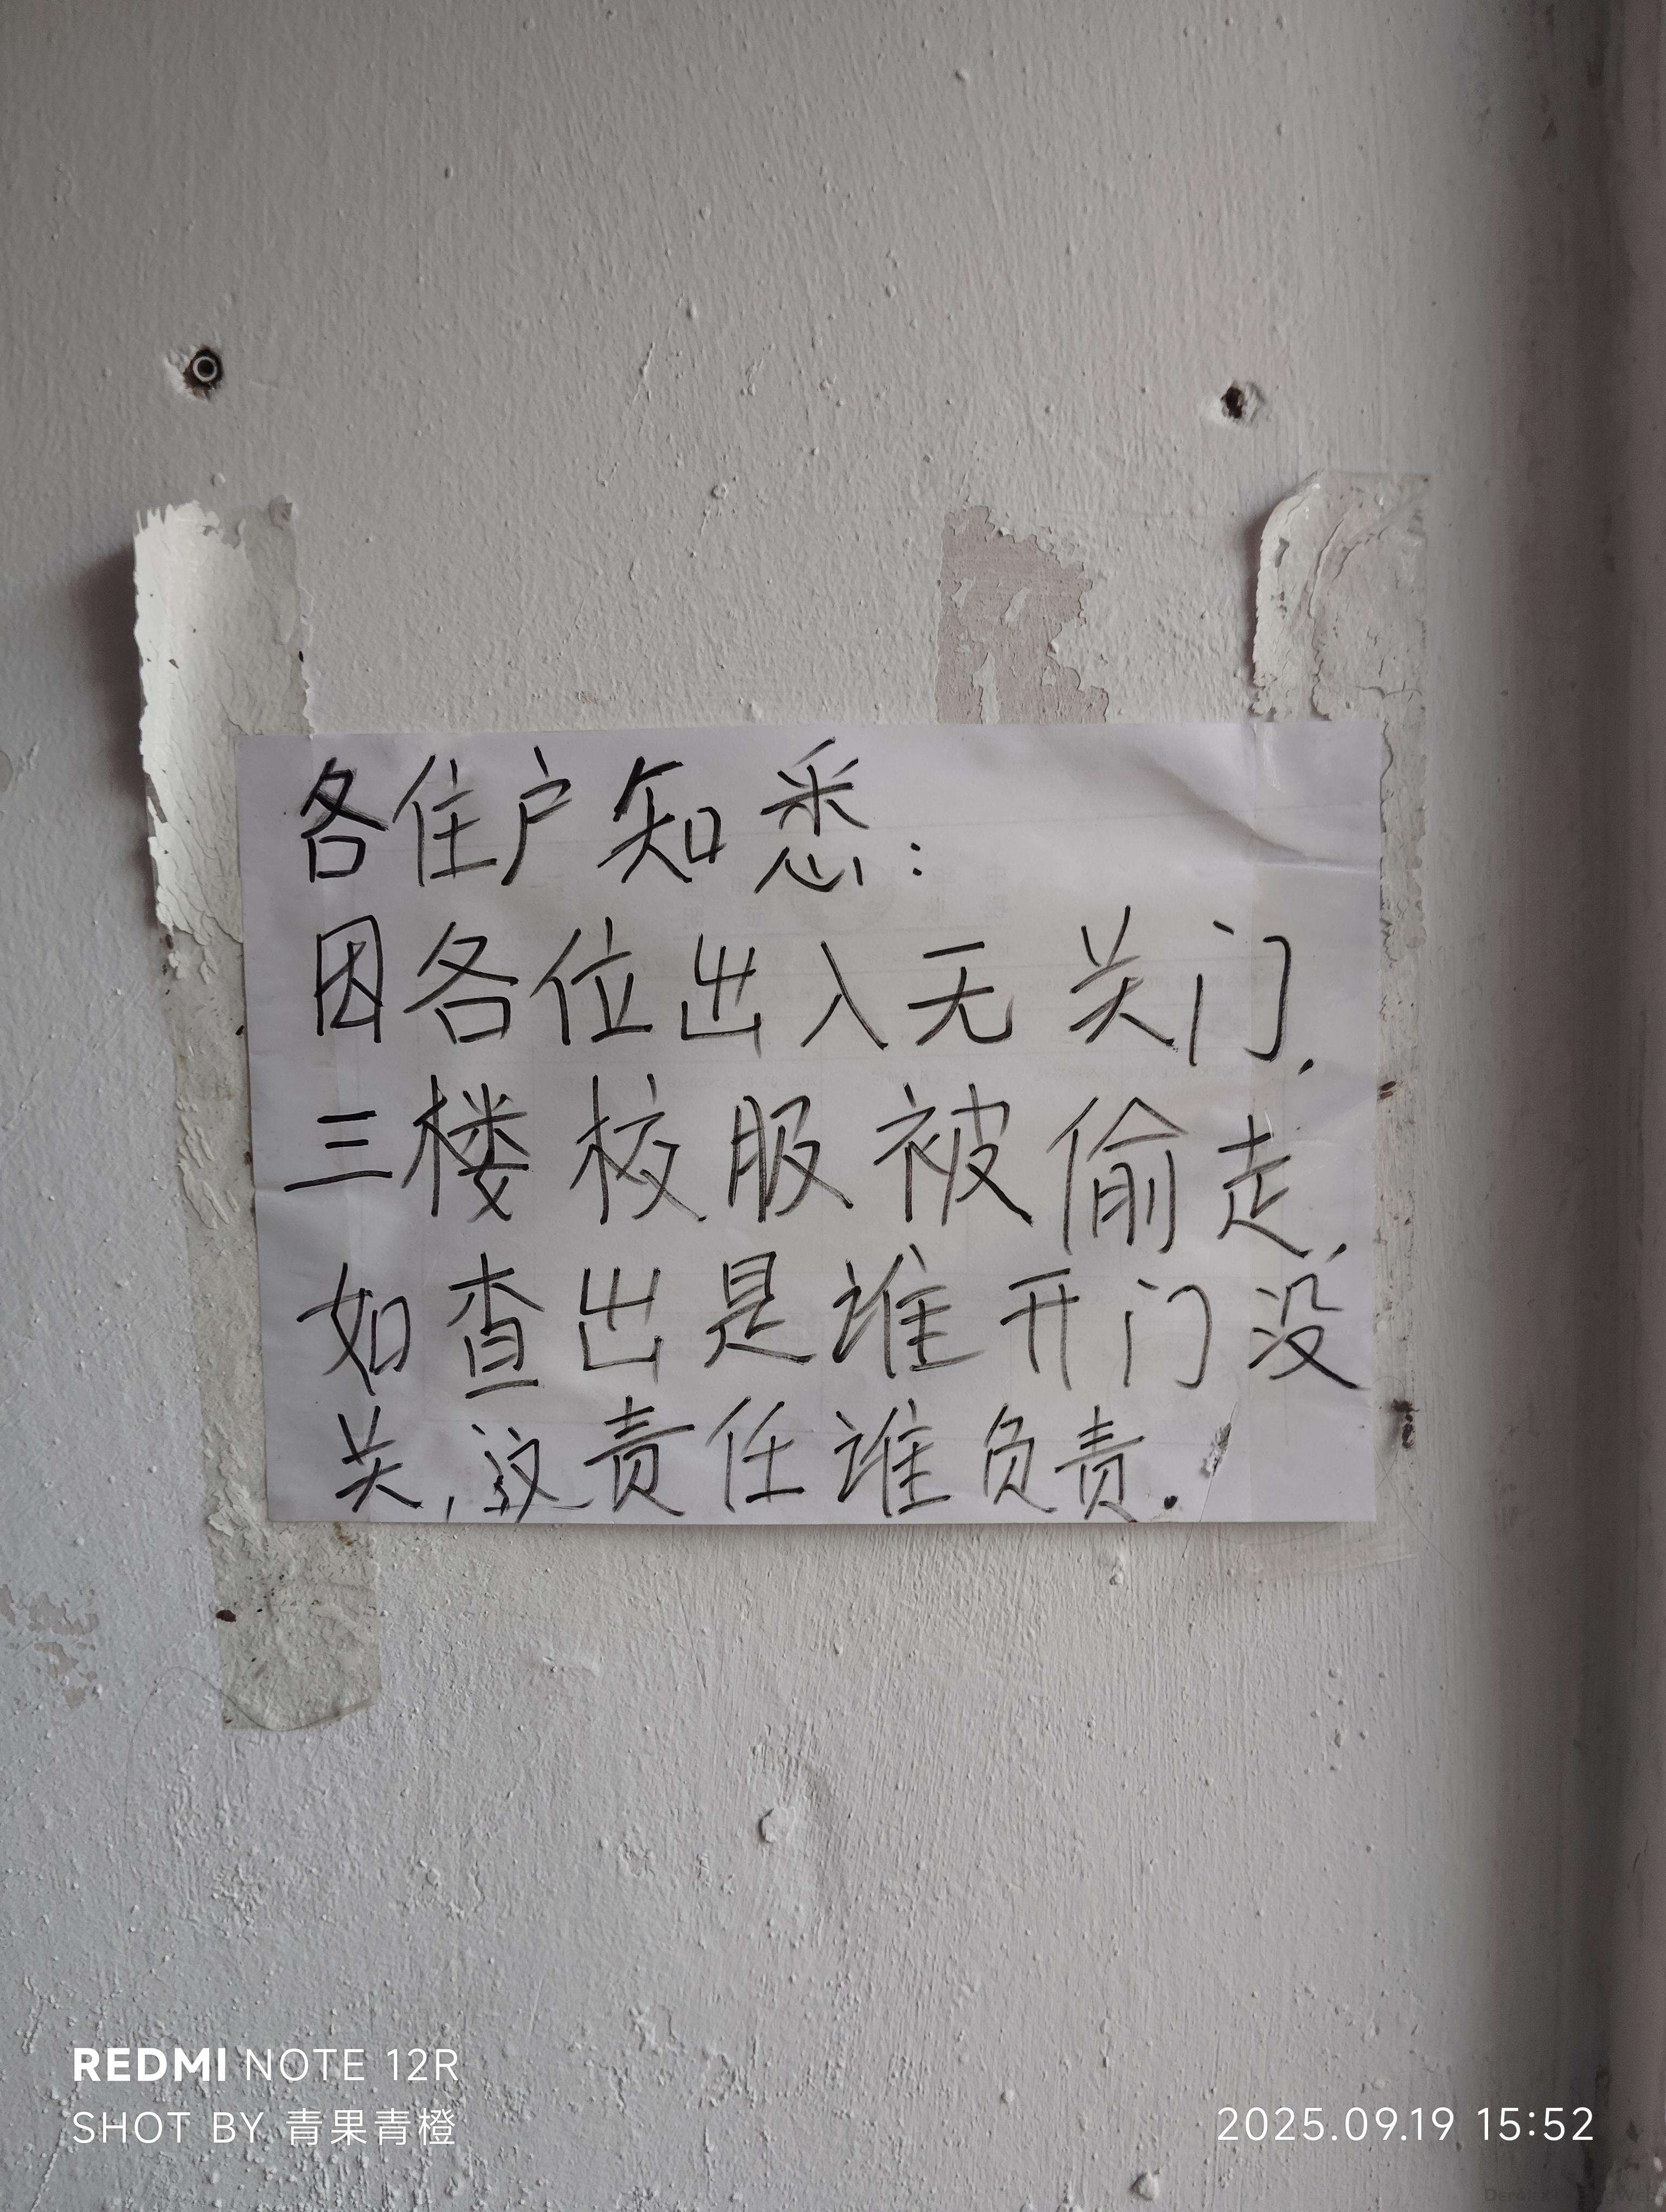 各住户知悉：
因各位出入无关门，
三楼校服被偷走，
如查出是谁开门没
关，这责任谁负责．
REDMI NOTE 12R
SHOT BY 青果青橙
2025.09.19 15:52